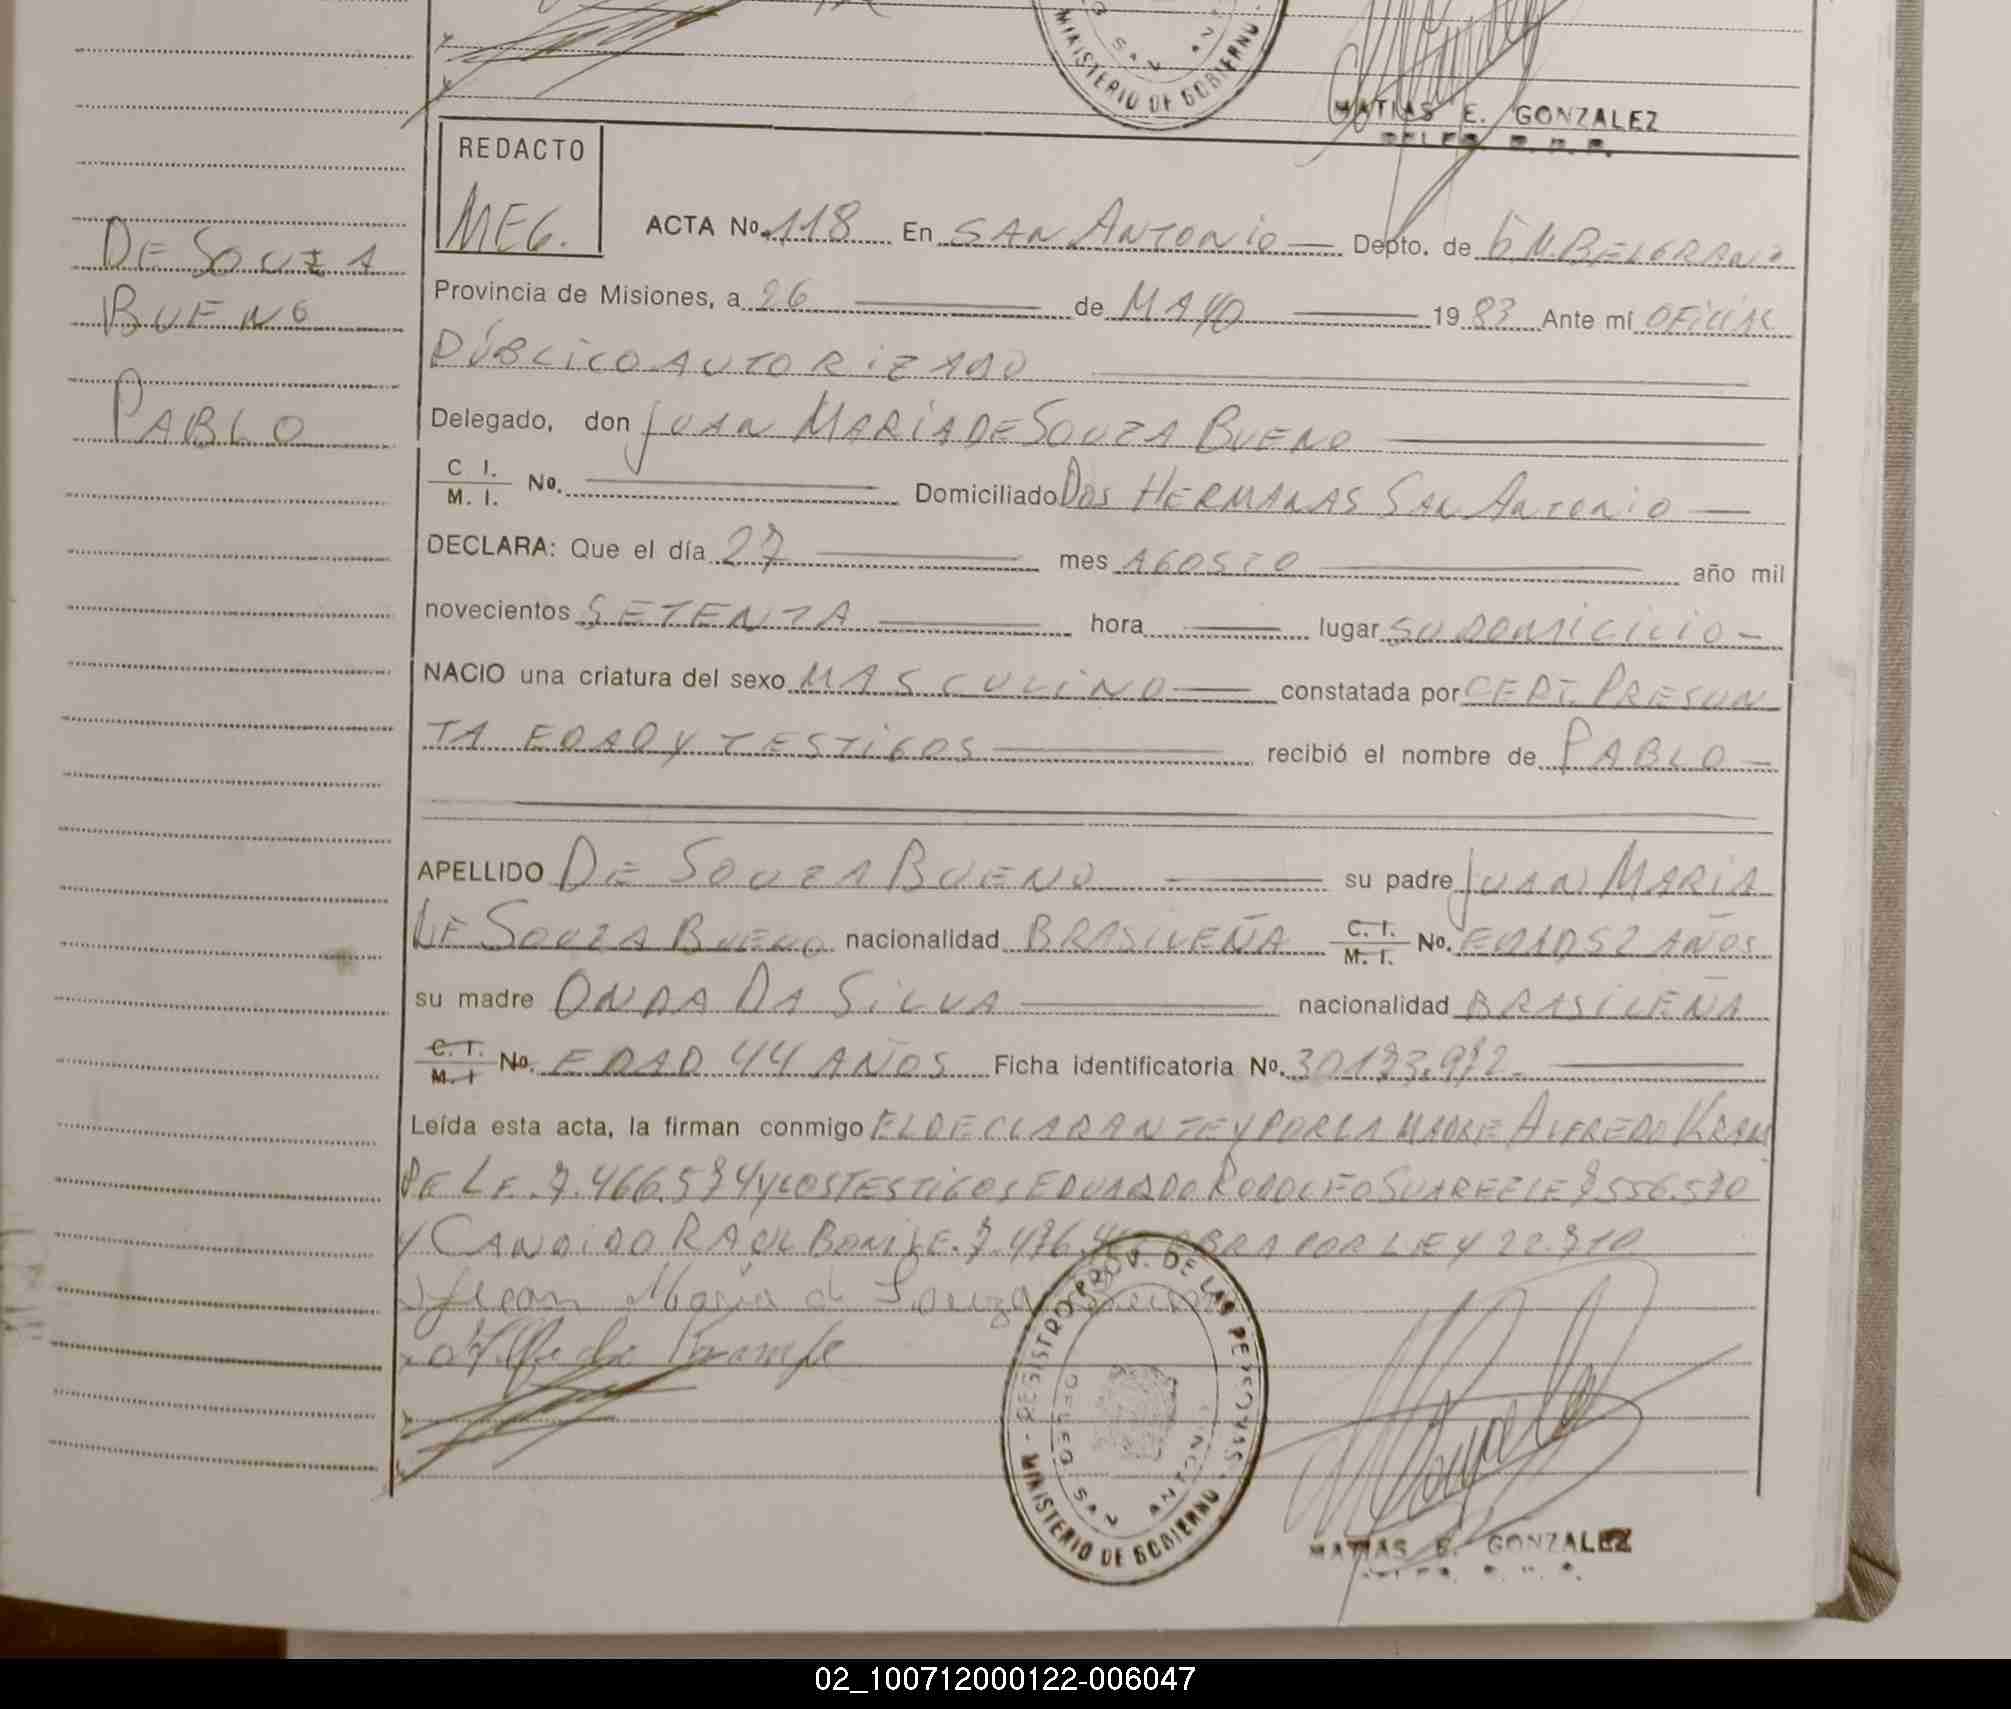 MINISTERIO DE GOBIERNO
MATIAS E. GONZALEZ
REDACTO
MEG.
DE SOUZA
BUENO
PABLO
ACTA No. 118 En SAN ANTONIO Depto. de G.M. BELGRANO
Provincia de Misiones, a 26 de MAYO 1983 Ante mí OFICIAL
PÚBLICO AUTORIZADO
Delegado, don JUAN MARIA DE SOUZA BUENO
C I. / M. I. No. Domiciliado DOS HERMANAS SAN ANTONIO
DECLARA: Que el día 27 mes AGOSTO año mil
novecientos SETENTA hora lugar SU DOMICILIO
NACIO una criatura del sexo MASCULINO constatada por CERT. PRESUN
TA EDAD Y TESTIGOS recibió el nombre de PABLO
APELLIDO DE SOUZA BUENO su padre JUAN MARIA
DE SOUZA BUENO nacionalidad BRASILEÑA C. I. / M. I. No. EDAD 52 AÑOS
su madre ONDA DA SILVA nacionalidad BRASILEÑA
C. I. / M. I No. EDAD 44 AÑOS Ficha identificatoria No. 30173.972
Leída esta acta, la firman conmigo EL DECLARANTE Y POR LA MADRE ALFREDO KRAM
PE L.E. 7.466.574 Y LOS TESTIGOS EDUARDO RODOLFO SUAREZ LE 7556.570
Y CANDIDO RAUL BONI L.E. 7.476.4 OBRA POR LEY 22.710
Juan Maria de Souza Bueno
Alfredo Krampe
REGISTRO PROV. DE LAS PERSONAS
DELEG. SAN ANTONIO
MINISTERIO DE GOBIERNO
MATIAS E. GONZALEZ
02_100712000122-006047